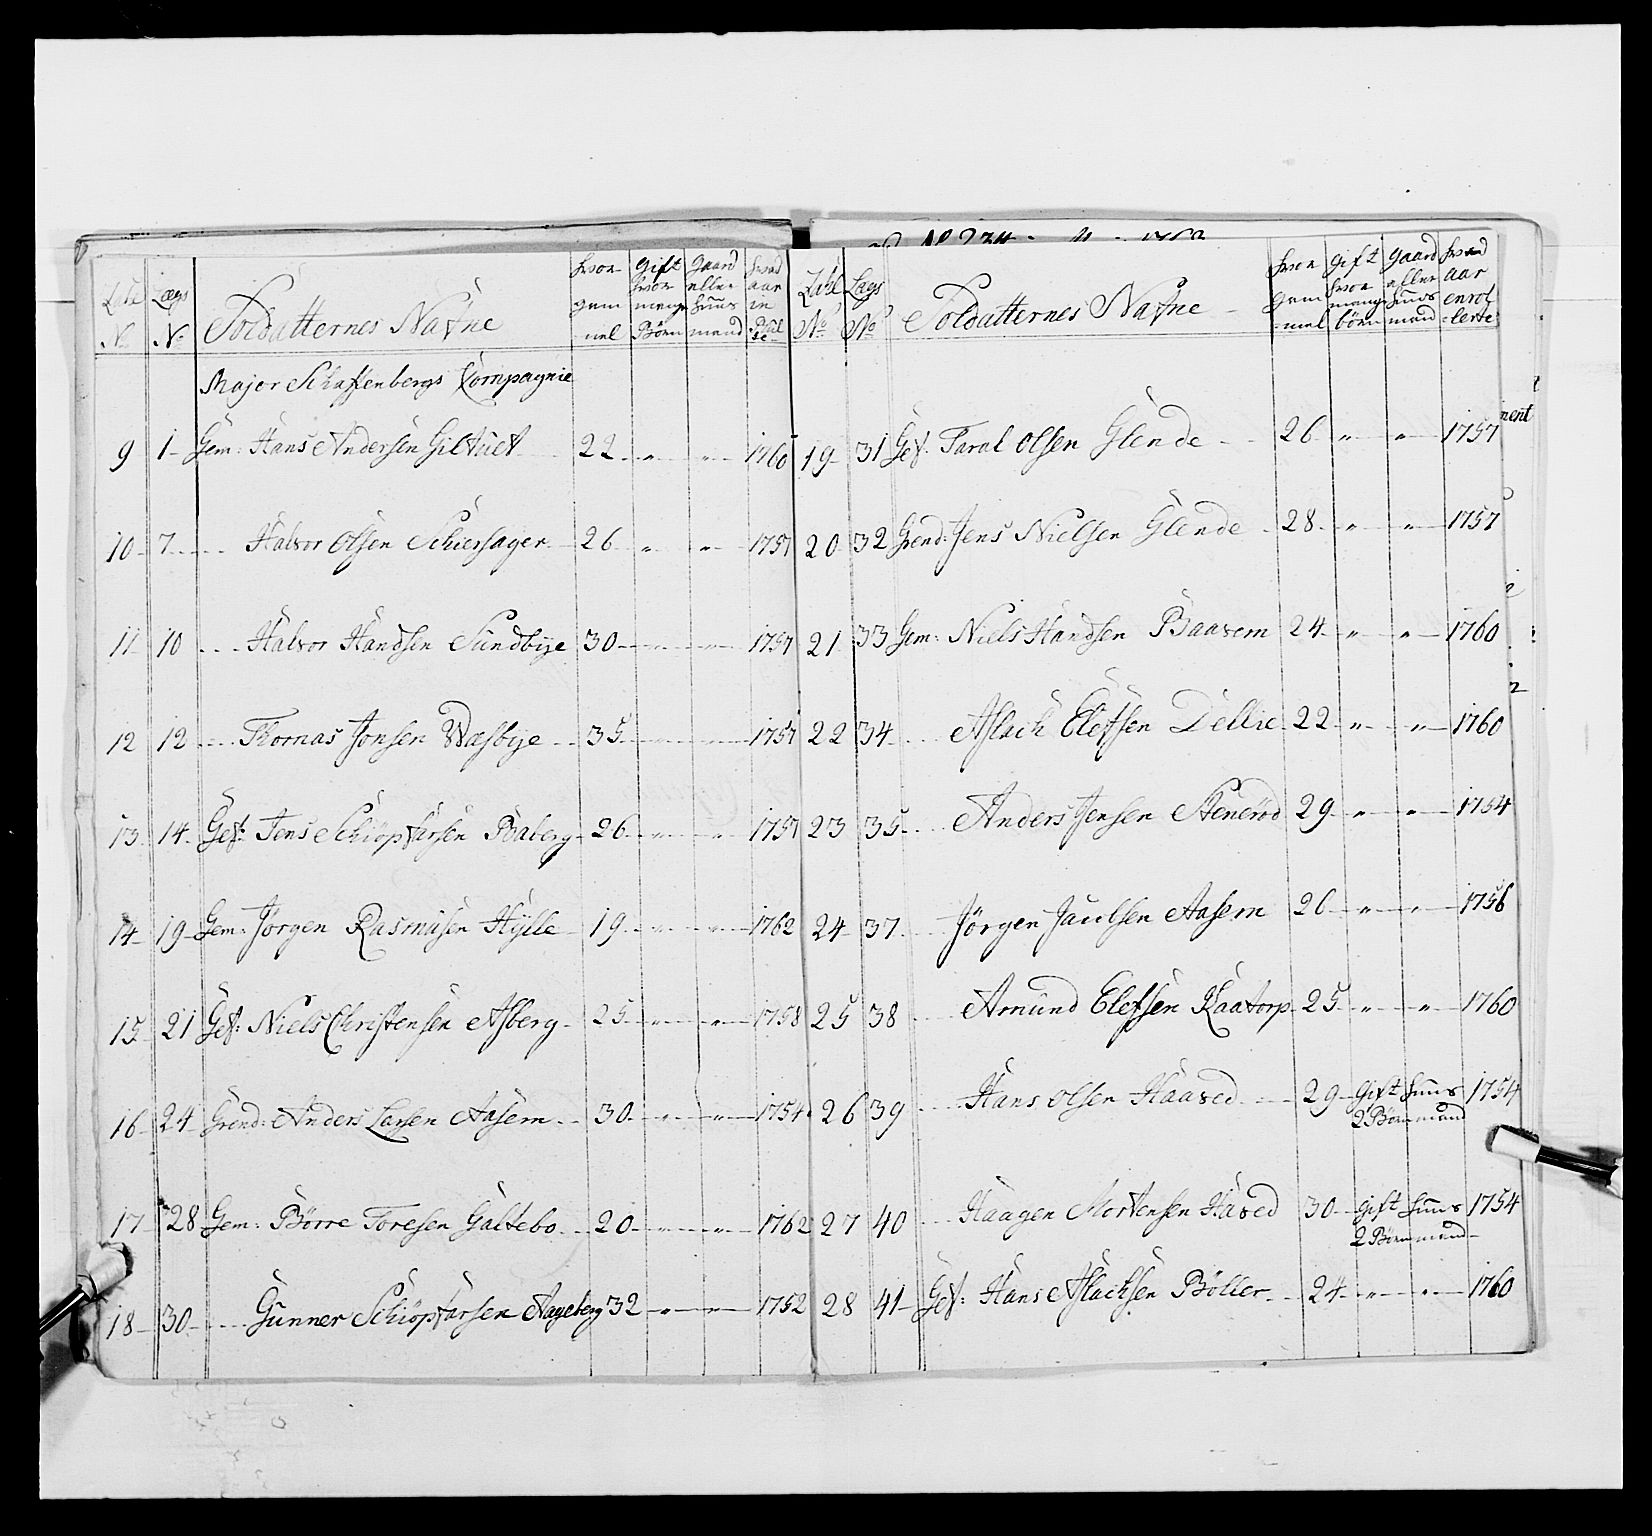 Zahl No | Lægs No | Soldatternes Nafne | hvor gam̄mel | Gift hvor mange Börn | Gaard eller Huus mand | hvad aar in Rulse
Major Schaffenbergs Compagnie
9 | 1 | Gem: Hans Andersen Giltuet | 22 | " | " | 1760
10 | 7 | Halvor Olsen Schiersager | 26 | " | " | 1757
11 | 10 | Halvor Handsen Sundbye | 30 | " | " | 1757
12 | 12 | Thomas Jonsen Wasbye | 35 | " | " | 1757
13 | 14 | Gef: Jens Schiöpfarsen Raaberg | 26 | " | " | 1757
14 | 19 | Gem: Jörgen Rasmusen Hylle | 19 | " | " | 1762
15 | 21 | Gef: Niels Christensen Asberg | 25 | " | " | 1758
16 | 24 | Grend: Anders Larsen Aasem | 30 | " | " | 1754
17 | 28 | Gem: Börre Toresen Galtebo | 20 | " | " | 1762
18 | 30 | Gunner Schiöpfarsen Aageberg | 32 | " | " | 1752
Zahl No | Lægs No | Soldatternes Nafne | hvor gammel | Gift hvor mange börn | Gaard eller Huus mand | hvad aar enrollerte
19 | 31 | Gef. Taral Olsen Glende | 26 | " | " | 1757
20 | 32 | Grend: Jens Nielsen Glende | 28 | " | " | 1757
21 | 33 | Gem: Niels Handsen Baasem | 24 | " | " | 1760
22 | 34 | Aslach Elefsen Dellie | 22 | " | " | 1760
23 | 35 | Anders Jensen Steneröd | 29 | " | " | 1754
24 | 37 | Jörgen Paulsen Aasem | 26 | " | " | 1756
25 | 38 | Amund Elefsen Kaatorp | 25 | " | " | 1760
26 | 39 | Hans Olsen Haaved | 29 | Gift 2 Börn | Huus mand | 1754
27 | 40 | Haagen Mortensen Haved | 30 | Gift 2 Börn | Huus mand | 1754
28 | 41 | Gef: Hans Aslachsen Böller | 24 | " | " | 1760